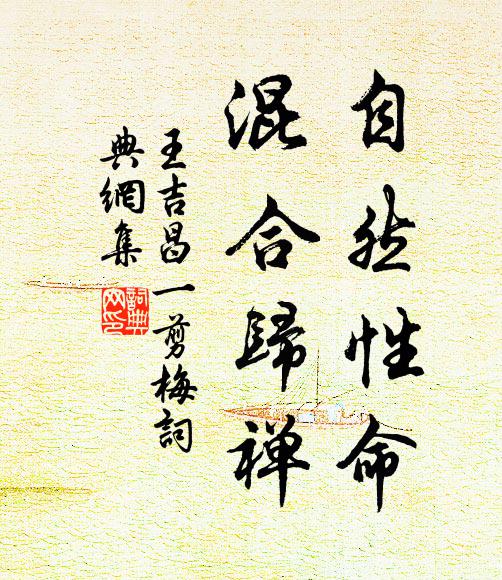 自然性命
混合歸禅
王吉昌一剪梅詞
典網集
詞典网印